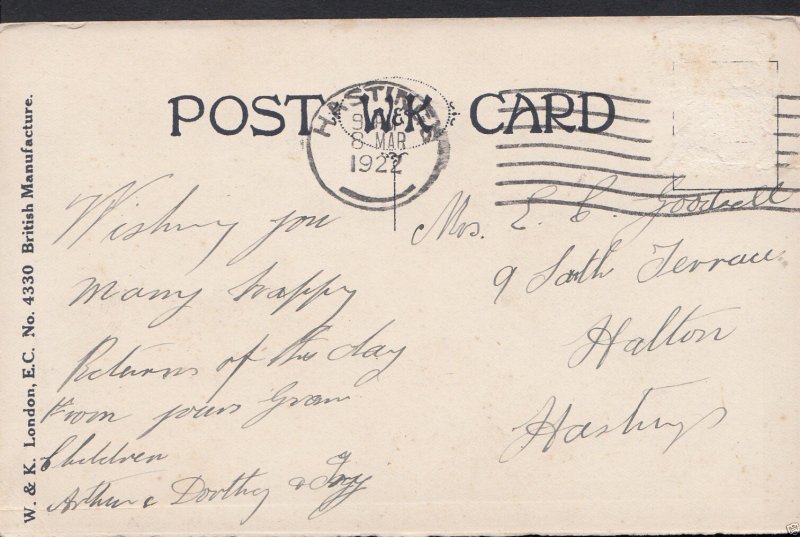 POST W K CARD
HASTINGS
8 MAR
1922
W. & K. London, E.C. No. 4330 British Manufacture.
Wishing you
many happy
Returns of the day
from yours Gran
Children
Arthur & Dorthy &
Mrs. E. C. Goodsell
9 South Terrace
Halton
Hastings